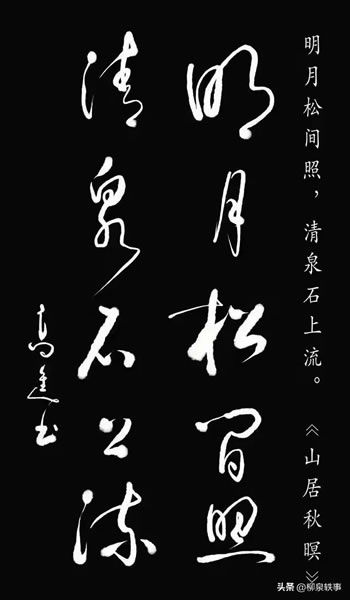 明月松间照，清泉石上流。 《山居秋暝》
明月松间照
清泉石上流
高进书
头条 @柳泉轶事